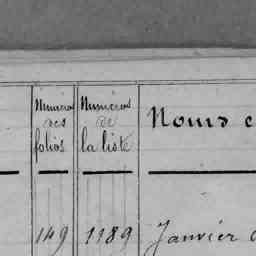 Numéros des folios
Numéros de la liste
Noms
149 1189 Janvier